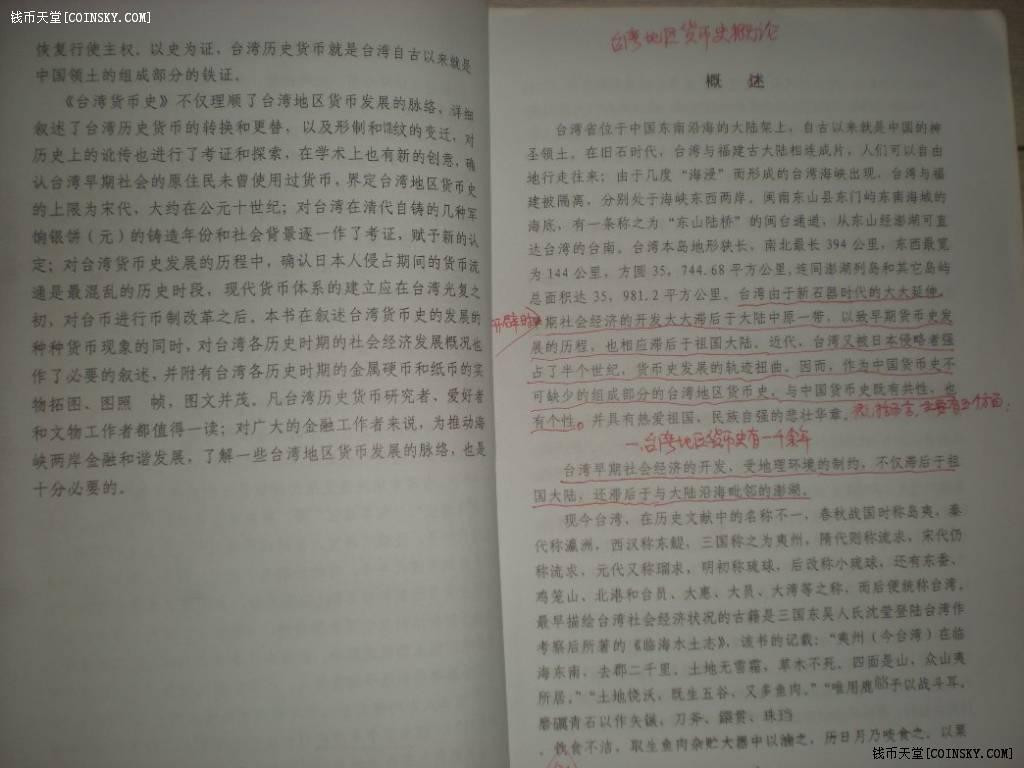 钱币天堂[COINSKY.COM]
恢复行使主权。以史为证，台湾历史货币就是台湾自古以来就是
中国领土的组成部分的铁证。
《台湾货币史》不仅理顺了台湾地区货币发展的脉络，详细
叙述了台湾历史货币的转换和更替，以及形制和饰纹的变迁，对
历史上的讹传也进行了考证和探索，在学术上也有新的创意，确
认台湾早期社会的原住民未曾使用过货币，界定台湾地区货币史
的上限为宋代，大约在公元十世纪；对台湾在清代自铸的几种军
饷银饼（元）的铸造年份和社会背景逐一作了考证，赋于新的认
定；对台湾货币史发展的历程中，确认日本人侵占期间的货币流
通是最混乱的历史时段，现代货币体系的建立应在台湾光复之
初，对台币进行币制改革之后。本书在叙述台湾货币史的发展的
种种货币现象的同时，对台湾各历史时期的社会经济发展概况也
作了必要的叙述，并附有台湾各历史时期的金属硬币和纸币的实
物拓图、图照 帧，图文并茂。凡台湾历史货币研究者、爱好者
和文物工作者都值得一读；对广大的金融工作者来说，为推动海
峡两岸金融和谐发展，了解一些台湾地区货币发展的脉络，也是
十分必要的。
台湾地区货币史概论
概 述
台湾省位于中国东南沿海的大陆架上，自古以来就是中国的神
圣领土。在旧石时代，台湾与福建古大陆相连成片，人们可以自由
地行走往来；由于几度“海浸”而形成的台湾海峡出现，台湾与福
建被隔离，分别处于海峡东西两岸。闽南东山县东门屿东南海域的
海底，有一条称之为“东山陆桥”的闽台通道，从东山经澎湖可直
达台湾的台南。台湾本岛地形狭长，南北最长 394 公里，东西最宽
为 144 公里，方圆 35，744.68 平方公里，连同澎湖列岛和其它岛屿
总面积达 35，981.2 平方公里。台湾由于新石器时代的大大延伸，
早期社会经济的开发大大滞后于大陆中原一带，以致早期货币史发
展的历程，也相应滞后于祖国大陆。近代，台湾又被日本侵略者强
占了半个世纪，货币史发展的轨迹扭曲。因而，作为中国货币史不
可缺少的组成部分的台湾地区货币史，与中国货币史既有共性，也
有个性。并具有热爱祖国、民族自强的悲壮华章。
一.台湾地区货币史有一千余年
台湾早期社会经济的开发，受地理环境的制约，不仅滞后于祖
国大陆，还滞后于与大陆沿海毗邻的澎湖。
现今台湾，在历史文献中的名称不一，春秋战国时称岛夷，秦
代称瀛洲，西汉称东鳀，三国称之为夷州，隋代则称流求，宋代仍
称流求，元代又称瑠求，明初称琉球，后改称小琉球，还有东番、
鸡笼山、北港和台员、大惠、大员、大湾等之称，而后便统称台湾。
最早描绘台湾社会经济状况的古籍是三国东吴人氏沈莹登陆台湾作
考察后所著的《临海水土志》，该书的记载：“夷州（今台湾）在临
海东南，去郡二千里，土地无雪霜，草木不死，四面是山，众山夷
所居。”“土地饶沃，既生五谷，又多鱼肉。”“唯用鹿
予以战斗耳，
磨礪青石以作矢镞，刀斧、鐶贯、珠珰
，饮食不洁，取生鱼肉杂贮大器中以滷之，历日月乃啖食之，以菓
钱币天堂[COINSKY.COM]